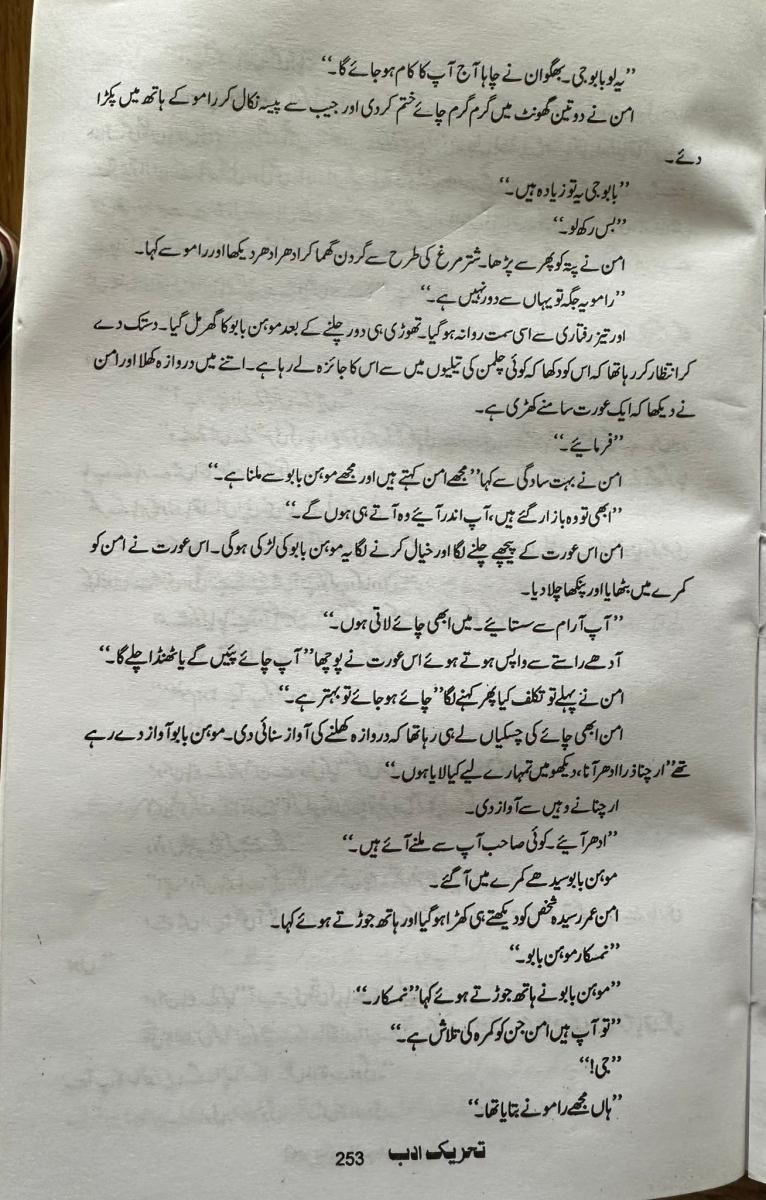 ”یہ لو بابو جی۔ بھگوان نے چاہا آج آپ کا کام ہو جائے گا۔“
امن نے دو تین گھونٹ میں گرم گرم چائے ختم کردی اور جیب سے پیسہ نکال کر راموکے ہاتھ میں پکڑا
دئے۔
”بابو جی یہ تو زیادہ ہیں۔“
”بس رکھ لو۔“
امن نے پتہ کو پھر سے پڑھا۔ شتر مرغ کی طرح سے گردن گھما کر ادھر ادھر دیکھا اور رامو سے کہا۔
”رامو یہ جگہ تو یہاں سے دور نہیں ہے۔“
اور تیز رفتاری سے اسی سمت روانہ ہو گیا۔ تھوڑی ہی دور چلنے کے بعد موہن بابو کا گھر مل گیا۔ دستک دے
کر انتظار کر رہا تھا کہ اس کو دکھا کہ کوئی چلمن کی تیلیوں میں سے اس کا جائزہ لے رہا ہے۔ اتنے میں دروازہ کھلا اور امن
نے دیکھا کہ ایک عورت سامنے کھڑی ہے۔
”فرمائیے۔“
امن نے بہت سادگی سے کہا ”مجھے امن کہتے ہیں اور مجھے موہن بابو سے ملنا ہے۔“
”ابھی تو وہ بازار گئے ہیں، آپ اندر آئیے وہ آتے ہی ہوں گے۔“
امن اس عورت کے پیچھے چلنے لگا اور خیال کرنے لگا یہ موہن بابو کی لڑکی ہوگی۔ اس عورت نے امن کو
کمرے میں بٹھایا اور پنکھا چلا دیا۔
”آپ آرام سے سستائیے۔ میں ابھی چائے لاتی ہوں۔“
آدھے راستے سے واپس ہوتے ہوئے اس عورت نے پوچھا ”آپ چائے پئیں گے یا ٹھنڈا چلے گا۔“
امن نے پہلے تو تکلف کیا پھر کہنے لگا ”چائے ہو جائے تو بہتر ہے۔“
امن ابھی چائے کی چسکیاں لے ہی رہا تھا کہ دروازہ کھلنے کی آواز سنائی دی۔ موہن بابو آواز دے رہے
تھے ”ارچنا ذرا ادھر آنا، دیکھو میں تمہارے لیے کیا لایا ہوں۔“
ارچنا نے وہیں سے آواز دی۔
”ادھر آئیے۔ کوئی صاحب آپ سے ملنے آئے ہیں۔“
موہن بابو سیدھے کمرے میں آگئے۔
امن عمر رسیدہ شخص کو دیکھتے ہی کھڑا ہو گیا اور ہاتھ جوڑتے ہوئے کہا۔
”نمسکار موہن بابو۔“
”موہن بابو نے ہاتھ جوڑتے ہوئے کہا ”نمسکار۔“
”تو آپ ہیں امن جن کو کمرہ کی تلاش ہے۔“
”جی!“
”ہاں مجھے رامو نے بتایا تھا۔“
تحریک ادب 253